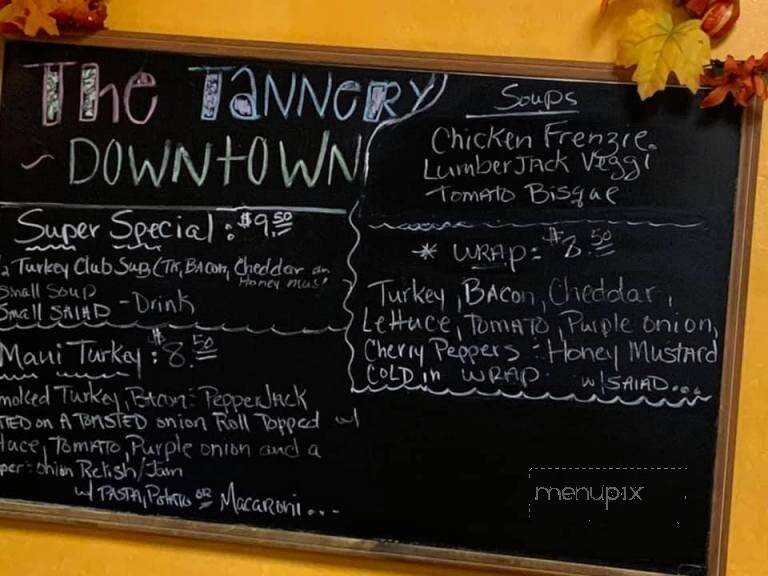 The Tannery
~ Downtown
Super Special: $9.50
1/2 Turkey Club Sub (TK, Bacon, Cheddar an
Honey Mus'
Small Soup
Small Salad - Drink
Maui Turkey: $8.50
moked Turkey, Bacon: PepperJack
on A Toasted onion Roll Topped w/
tuce, Tomato, Purple onion and a
per: onion Relish/Jam
w/ Pasta, Potato or Macaroni...-
Soups
Chicken Frenzie.
LumberJack Veggi
Tomato Bisque
* Wrap: $8.50
Turkey, Bacon, Cheddar,
Lettuce, Tomato, Purple onion,
Cherry Peppers: Honey Mustard
Cold in Wrap. w/ Salad...
menupix